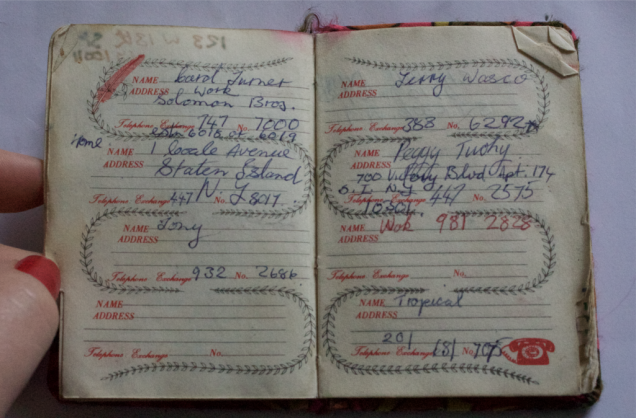 NAME Carol Turner
ADDRESS Work
Solomon Bros.
Telephone Exchange 747 No. 7000
Home
NAME 1 Locale Avenue
ADDRESS Staten Island
N.Y.
Telephone Exchange 447 No. 8017
NAME Tony
ADDRESS
Telephone Exchange 932 No. 2686
NAME
ADDRESS
Telephone Exchange No.
NAME Terry Wasco
ADDRESS
Telephone Exchange 388 No. 6292
NAME Peggy Tuohy
ADDRESS
700 Victory Blvd Apt. 17H
S.I. N.Y.
Telephone Exchange 447 No. 2575
NAME Work 981 2828
ADDRESS
Telephone Exchange No.
NAME Tropical
ADDRESS
201
Telephone Exchange No.